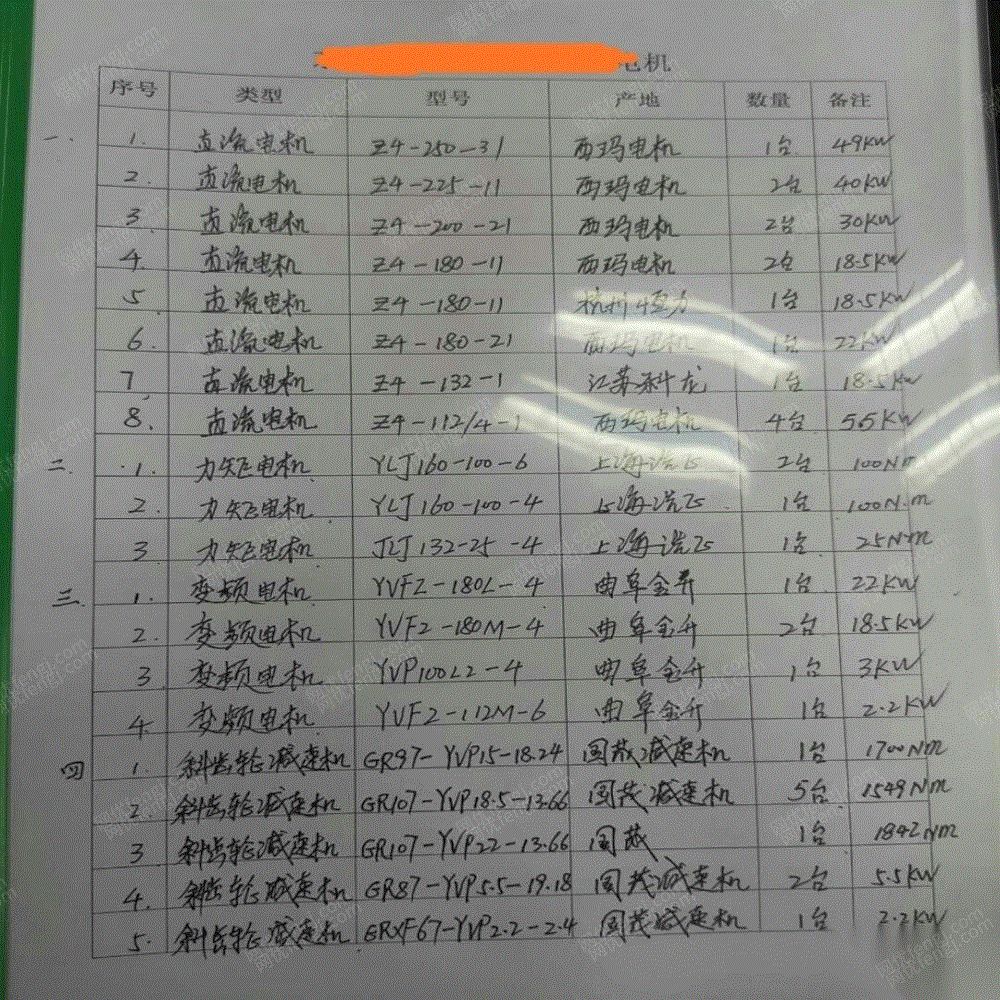 电机
序号 类型 型号 产地 数量 备注
一. 1. 直流电机 Z4-250-31 西玛电机 1台 49KW
2. 直流电机 Z4-225-11 西玛电机 2台 40KW
3 直流电机 Z4-200-21 西玛电机 2台 30KW
4. 直流电机 Z4-180-11 西玛电机 2台 18.5KW
5. 直流电机 Z4-180-11 杭州恒力 1台 18.5KW
6. 直流电机 Z4-180-21 西玛电机 1台 22KW
7 直流电机 Z4-132-1 江苏科龙 1台 18.5KW
8. 直流电机 Z4-112/4-1 西玛电机 4台 55KW
二. 1. 力矩电机 YLJ160-100-6 上海 2台 100Nm
2. 力矩电机 YLJ160-100-4 上海 1台 100N.m
3 力矩电机 JLJ132-25-4 上海 1台 25Nm
三. 1. 变频电机 YVF2-180L-4 曲阜金升 1台 22KW
2. 变频电机 YVF2-180M-4 曲阜金升 2台 18.5KW
3 变频电机 YVP100L2-4 曲阜金升 1台 3KW
4. 变频电机 YVF2-112M-6 曲阜金升 1台 2.2KW
四 1. 斜齿轮减速机 GR97-YVP15-18.24 国茂减速机 1台 1700Nm
2 斜齿轮减速机 GR107-YVP18.5-13.66 国茂减速机 5台 1549Nm
3 斜齿轮减速机 GR107-YVP22-13.66 国茂 1台 1842Nm
4. 斜齿轮减速机 GR87-YVP5.5-19.18 国茂减速机 2台 5.5KW
5. 斜齿轮减速机 GRXF67-YVP2.2-2.4 国茂减速机 1台 2.2KW